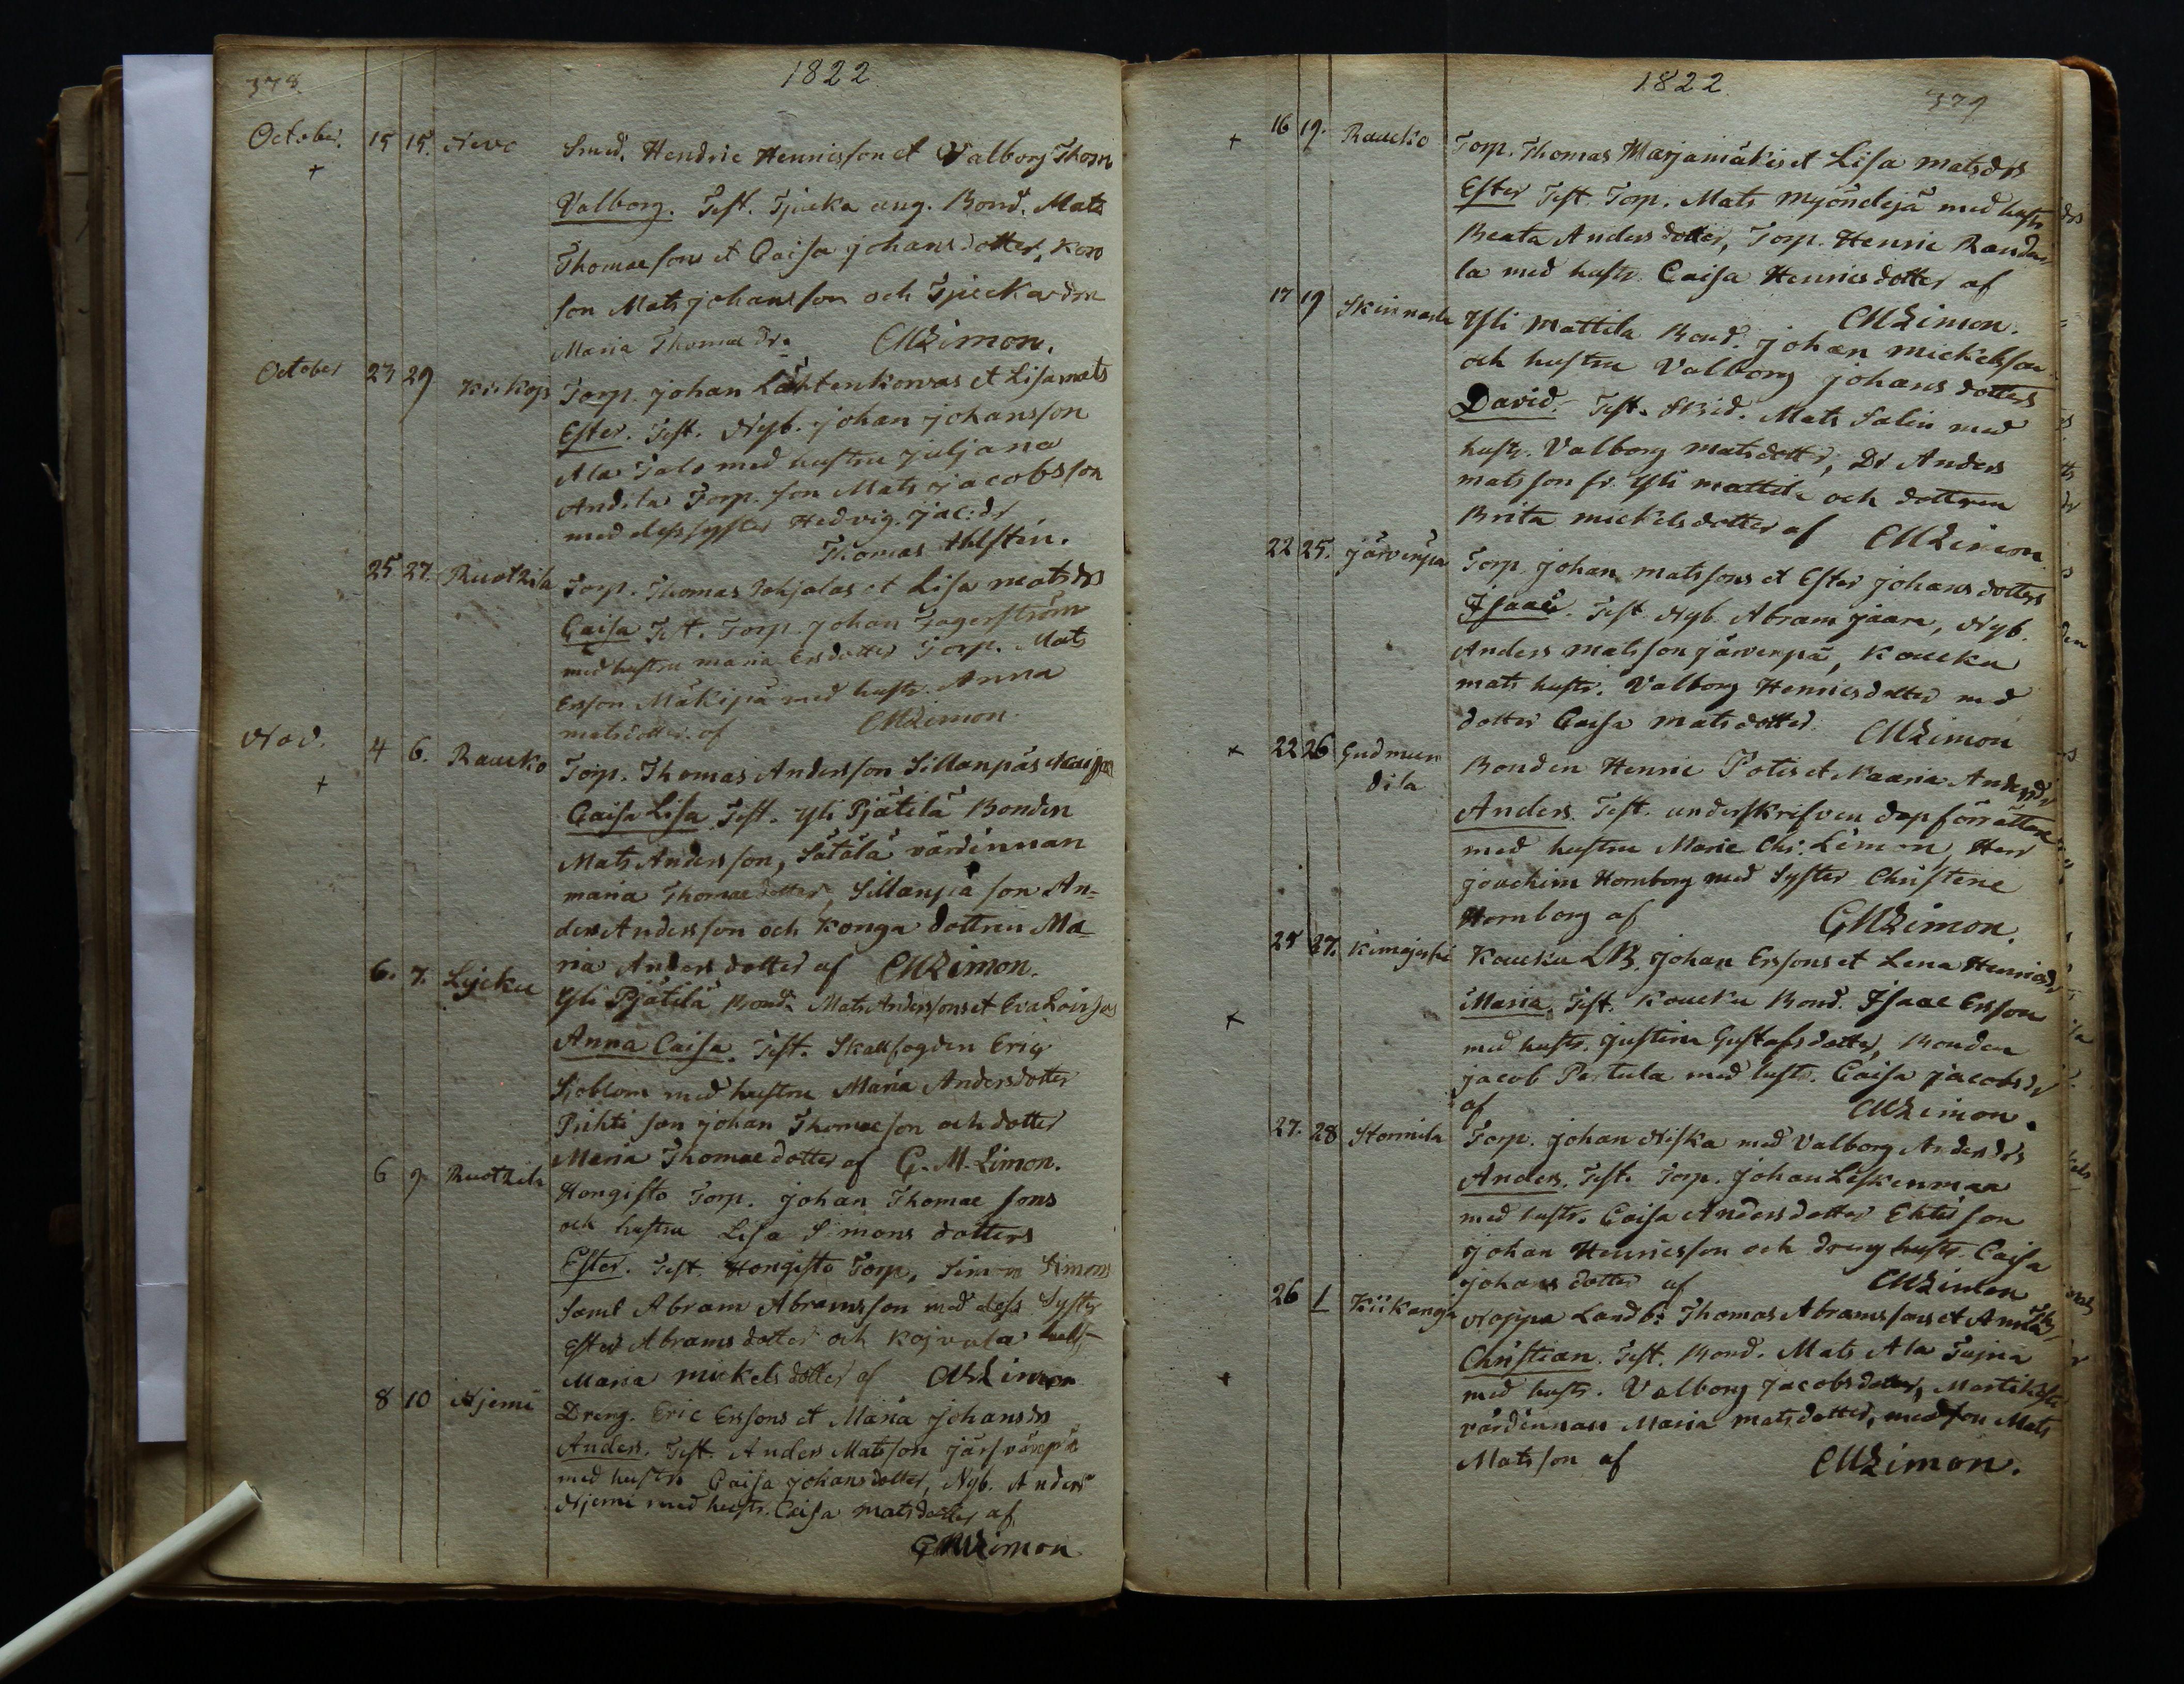 378
1822
October. 15 15. Nevo Smed. Hendric Hennissons et Valborg Thom
+
Valborg. Test. Tjucka aug. Bond. Mats
Thomaesons et Caisa johansdotter, Koro
son Mats johansson och Tjuckardr
Maria Thomaedr. CMLimon.
October 23 29 Kiikois Torp. johan Lähtenkorvas et Lisa mats
Ester. Test. Nyb. johan johansson
Ala Talo med hustru juljana
Andila Torp. son Mats jacobsson
med dess syster Hedvig jac:dr
Thomas Ahlstén.
25 27. Ruotzila Torp. Thomas Pohjalas et Lisa matsdrs
Caisa Test. Torp. johan Fagerström
med hustru maria Ersdotter Torp. Mats
Ersson Mäkipä med hustr. Anna
matsdotter. af CMLimon.
Nov. 4 6. Raucko Torp. Thomas Andersson Sillanpäs et caijsas
+
Caisa Lisa Test. Yli Pjätilä Bonden
Mats Andersson, Sätälä värdinnan
maria Thomaedotter, Sillanpä son An-
ders Andersson och Konga dottren Ma-
ria Andersdotter af CMLimon.
6. 7. Lycku Yli Pjätilä Bond. Mats Anderssons et Eva Lovisas
Anna Caisa. Test. Skallfogden Eric
Sjöblom med hustru Maria Andersdotter
Pirhti son johan Thomaeson och dotter
Maria Thomaedotter af C. M. Limon.
6 9 Ruotzila Hongisto Torp. johan Thomae sons
och hustru Lisa Simons dotters
Ester. Test. Hongisto Torp. Simon Simons
samt Abram Abramsson med dess Syster
Ester Abrams dotter och Kojvula hust-
Maria mickelsdotter af CMLimon
8 10 Njemi Dreng. Eric Erssons et Maria johansdrs
Anders. Test. Anders Matsson järfvänpä
med hustru Caisa johansdotter, Nyb. Anders
Njemi med hustr. Caisa matsdotter af
CMLimon
1822.
379
+ 16 19. Raucko Torp. Thomas Marjamäkis et Lisa matsdrs
Ester Test. Torp. Mats Myöndejä med hustr
Beata Andersdotter, Torp. Henric Randa
la med hustr. Caisa Henricsdotter af
CMLimon.
17 19 Skinnarla Yli Mattila Bond. johan mickelsson
och hustru Valborg johans dotters
David. Test. Mats Salin med
hustr. Valborg matsdotter, Dr Anders
matsson fr. Yli mattila och dottren
Brita mickelsdotter af CMLimon
22 25. järvenpä Torp. johan matssons et Ester johansdotters
Isaac. Test. Nyb. Abram jaara, Nyb.
Anders matsson järvenpä, Koucku
mats hustr. Valborg Henricsdotter med
dotter Caisa matsdotter. CMLimon
+ 22 26 Gudmun
dila
Bonden Henric Potis et Maria Andersdr
Anders. Test. underskrifven dopförrättare
med hustru Marie Chr: Limon, Herr
joachim Homborg med Syster Christene
Homborg af CMLimon.
25 27. Kimajerfvi Koucku LB. johan Erssons et Lena Henricsdr
+
Maria. Test. Koucku Bond. Isaac Ersson
med hustr. justina Gustafsdotter, Bonden
jacob Pertula med hustr. Caisa jacobsdr
af CMLimon.
27. 28 Stormila Torp. johan Niska med Valborg Andersdrs
Anders. Test. Torp. johan Leskenmaa
med hustr. Caisa Andersdotter Ektis son
johan Henricsson och dreng hustr. Caisa
johans dotter af CMLimon
26 1 Kiikanoja Noppa Landb: Thomas Abramssons et Anna Th,
Christian. Test. Bond. Mats Ala Tujna
+
med hustr. Valborg jacobsdotter, Martikkala
värdinnan Maria matsdotter, med son Mats
Matsson af CMLimon.